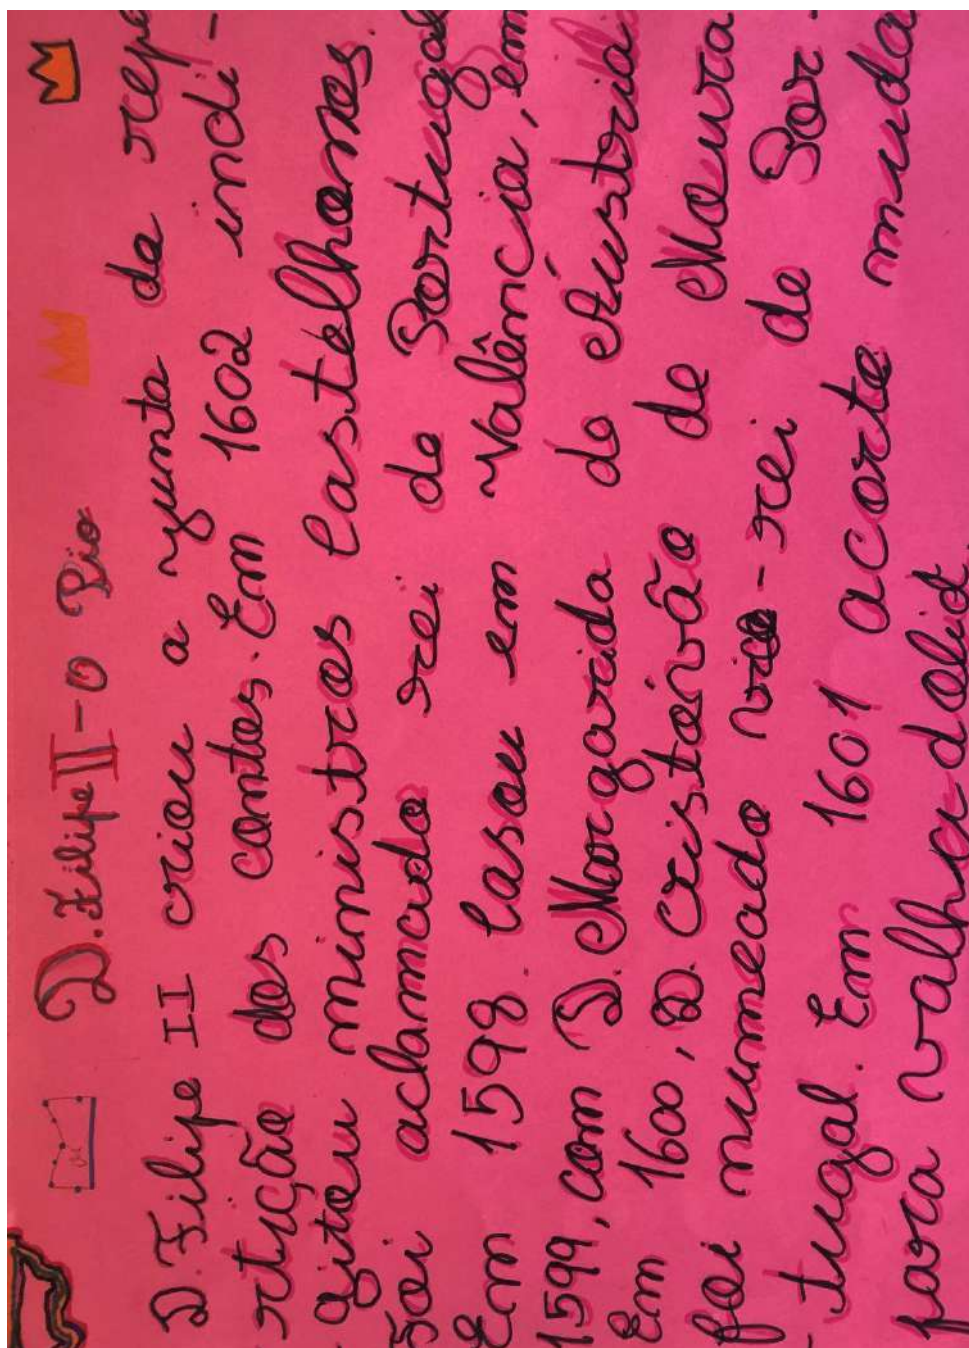 D. Filipe II - O Pio
D. Filipe II criou a yunta da repe
rtição dos contos. Em 1602 indi-
gitou ministros Castelhanos.
Foi aclamado rei de Portugal
Em 1598. Casou em Valência, em
1599, com D. Margarida de Áustria.
Em 1600, D. Cristóvão de Moura
foi numeado vice-rei de Por-
tugal. Em 1601 a corte muda
para valhadolid.